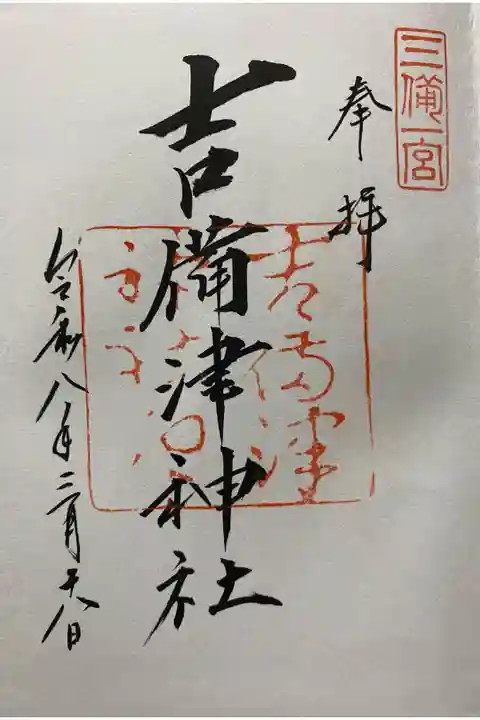 三備一宮
奉拝
吉備津神社
吉備津
令和八年三月十八日